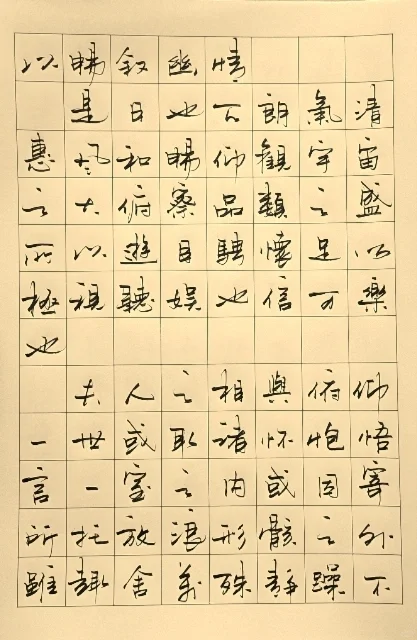 以暢叙幽情
是日也天朗氣清
惠風和暢仰觀宇宙
之大俯察品類之盛
所以遊目騁懷足以
極視聽娱也信可樂
也
夫人之相與俯仰
一世或取諸怀抱悟
言一室之内或因寄
所托放浪形骸之外
雖趣舍萬殊靜躁不